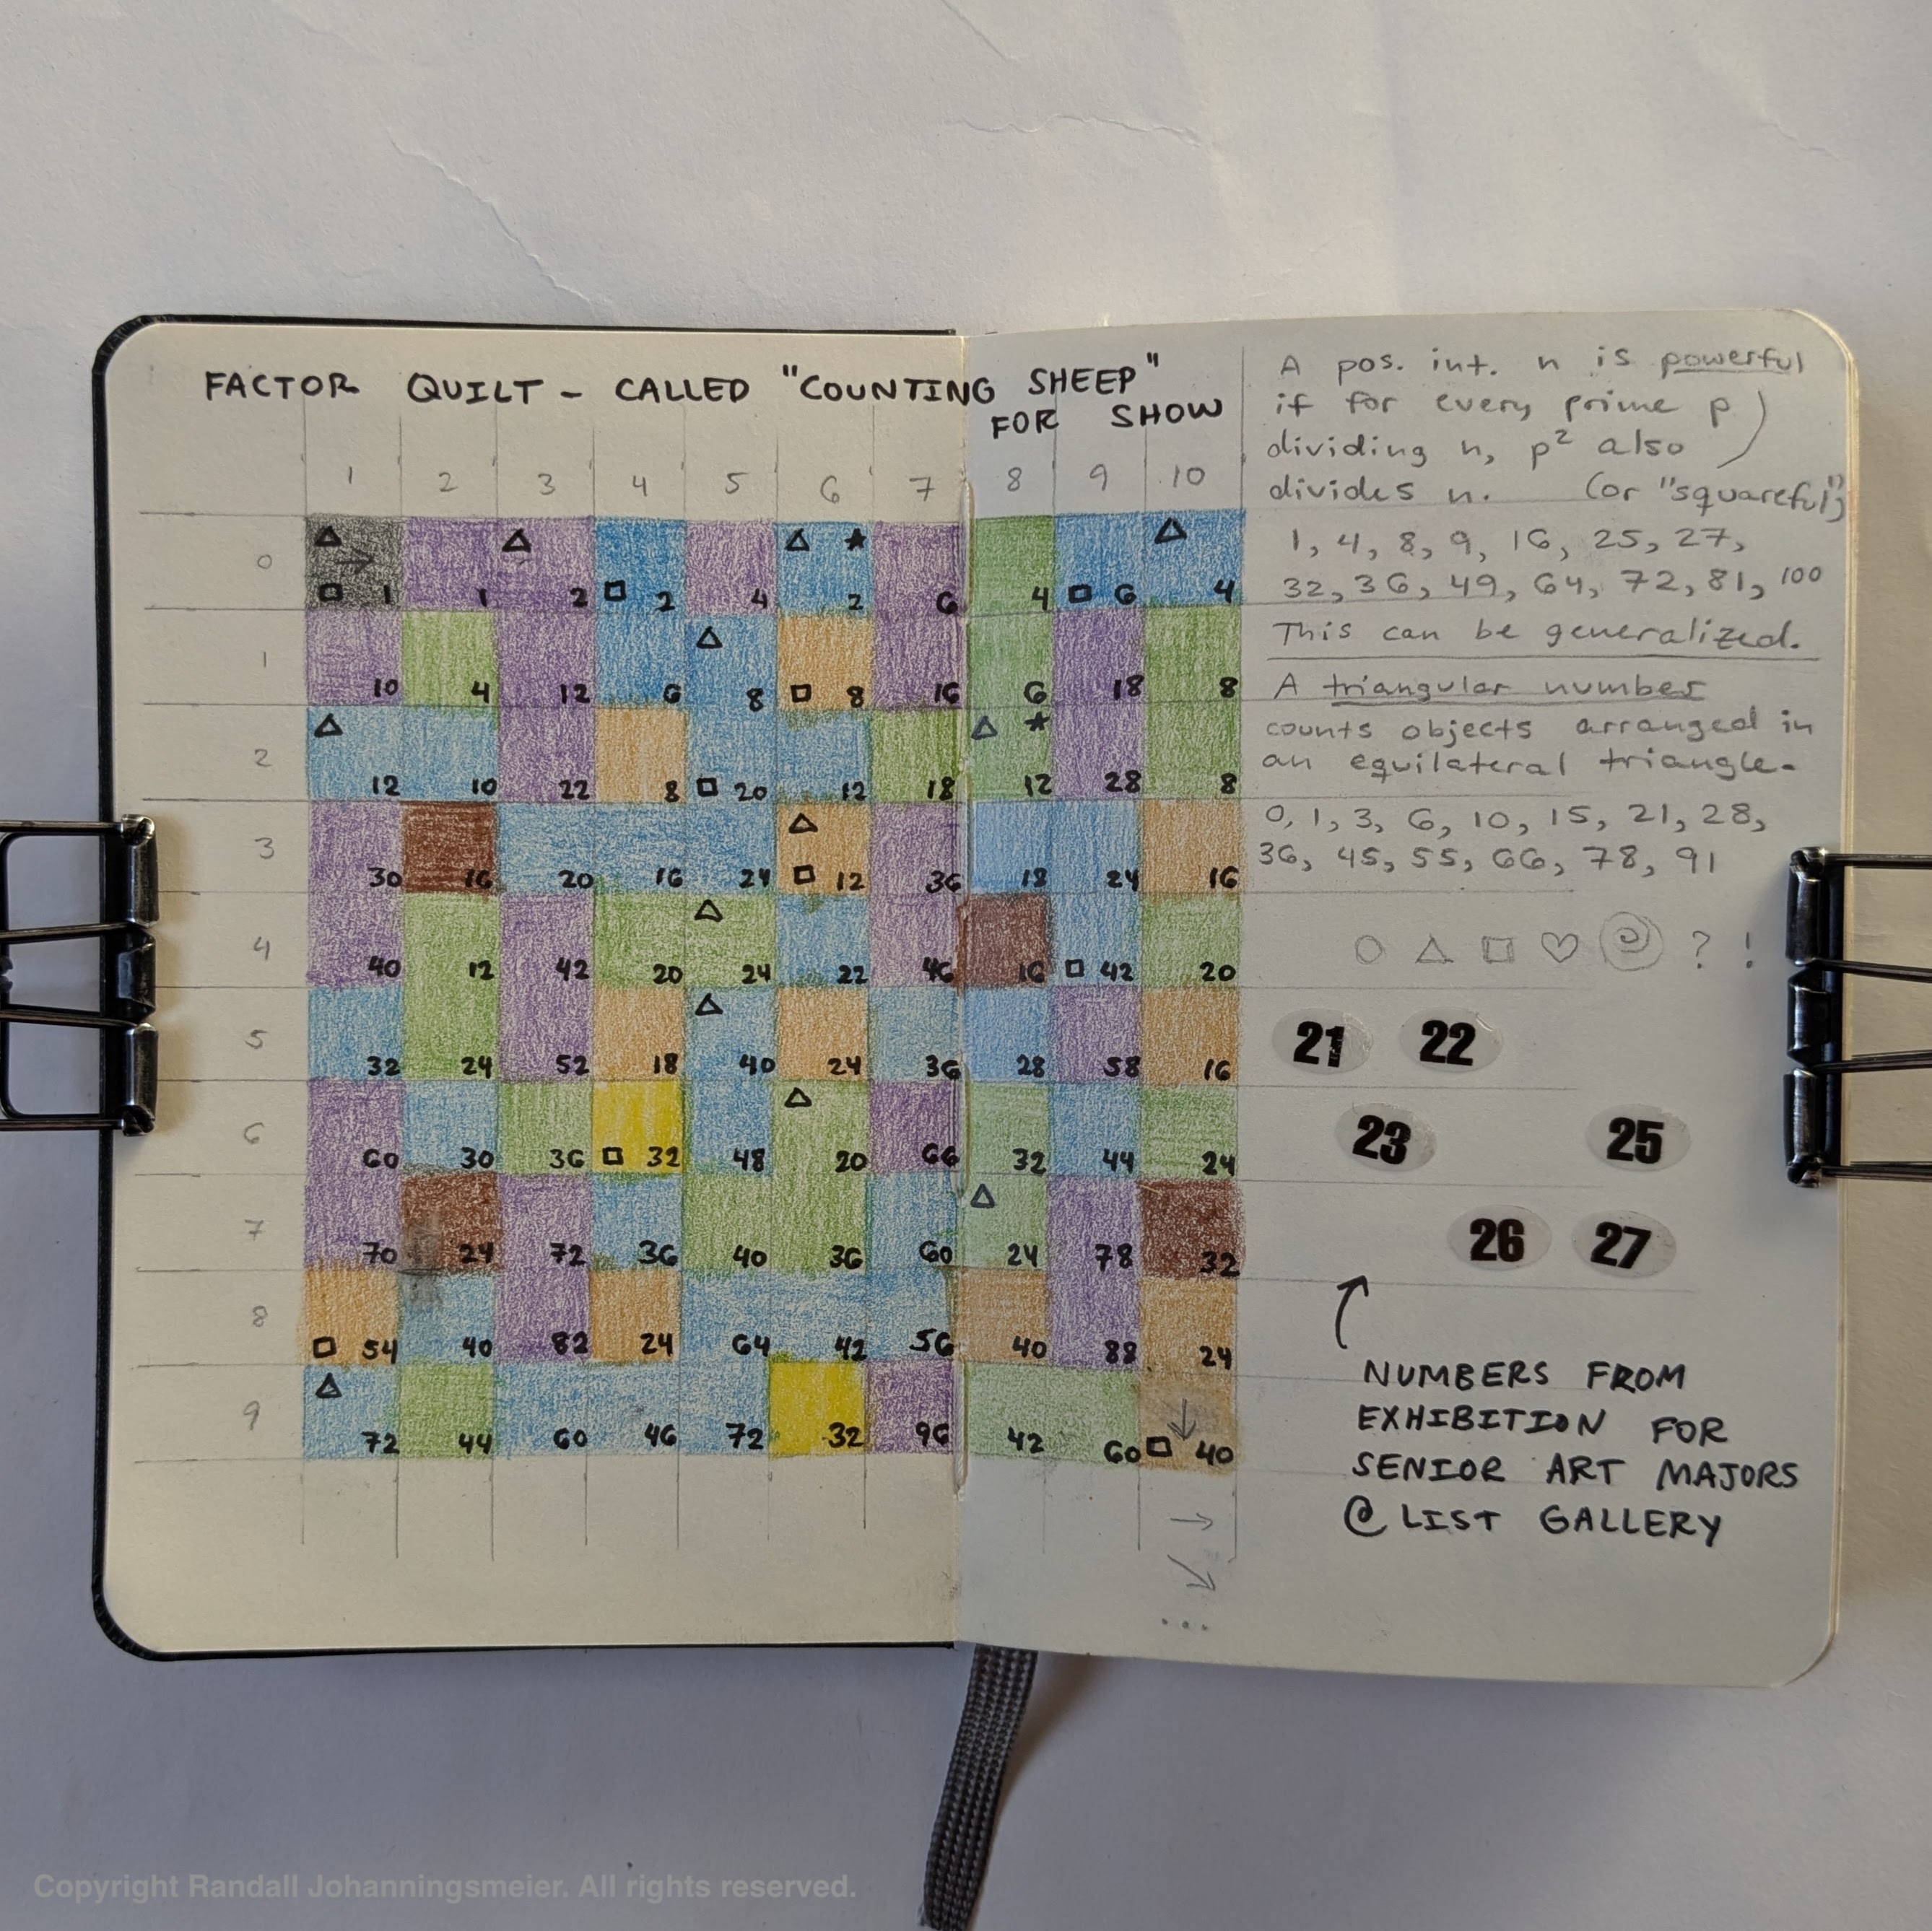 FACTOR QUILT - CALLED "COUNTING SHEEP"
FOR SHOW
1 2 3 4 5 6 7 8 9 10
0 1 1 2 2 4 2 6 4 6 4
1 10 4 12 6 8 8 16 6 18 8
2 12 10 22 8 20 12 18 12 28 8
3 30 16 20 16 24 12 36 18 24 16
4 40 12 42 20 24 22 46 16 42 20
5 32 24 52 18 40 24 36 28 58 16
6 60 30 36 32 48 20 66 32 44 24
7 70 24 72 36 40 36 60 24 78 32
8 54 40 82 24 64 42 56 40 88 24
9 72 44 60 46 72 32 96 42 60 40
...
A pos. int. n is powerful
if for every prime p
dividing n, p² also
divides n. (or "squareful")
1, 4, 8, 9, 16, 25, 27,
32, 36, 49, 64, 72, 81, 100
This can be generalized.
A triangular number
counts objects arranged in
an equilateral triangle.
0, 1, 3, 6, 10, 15, 21, 28,
36, 45, 55, 66, 78, 91
? !
21 22
23 25
26 27
NUMBERS FROM
EXHIBITION FOR
SENIOR ART MAJORS
@ LIST GALLERY
Copyright Randall Johanningsmeier. All rights reserved.